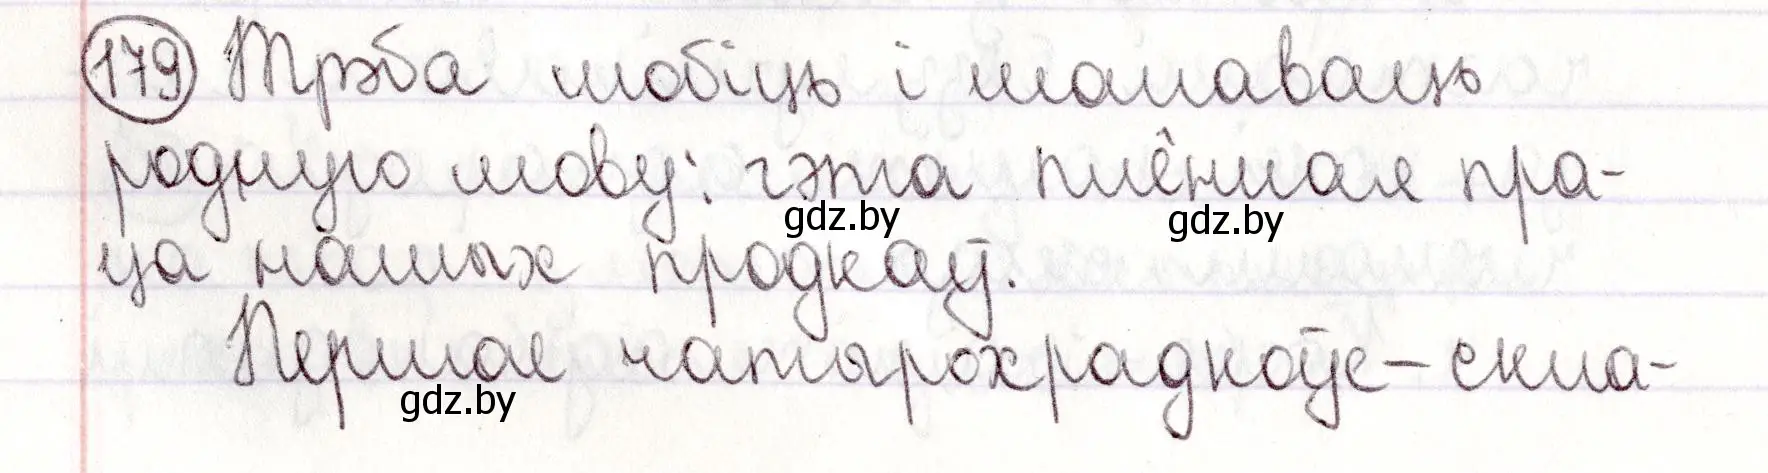 179 Трэба любіць і шанаваць
родную мову: гэта плённая пра-
gdz.by gdz.by
ца нашых продкаў.
Першае чатырохрадкоўе – скла-
gdz.by